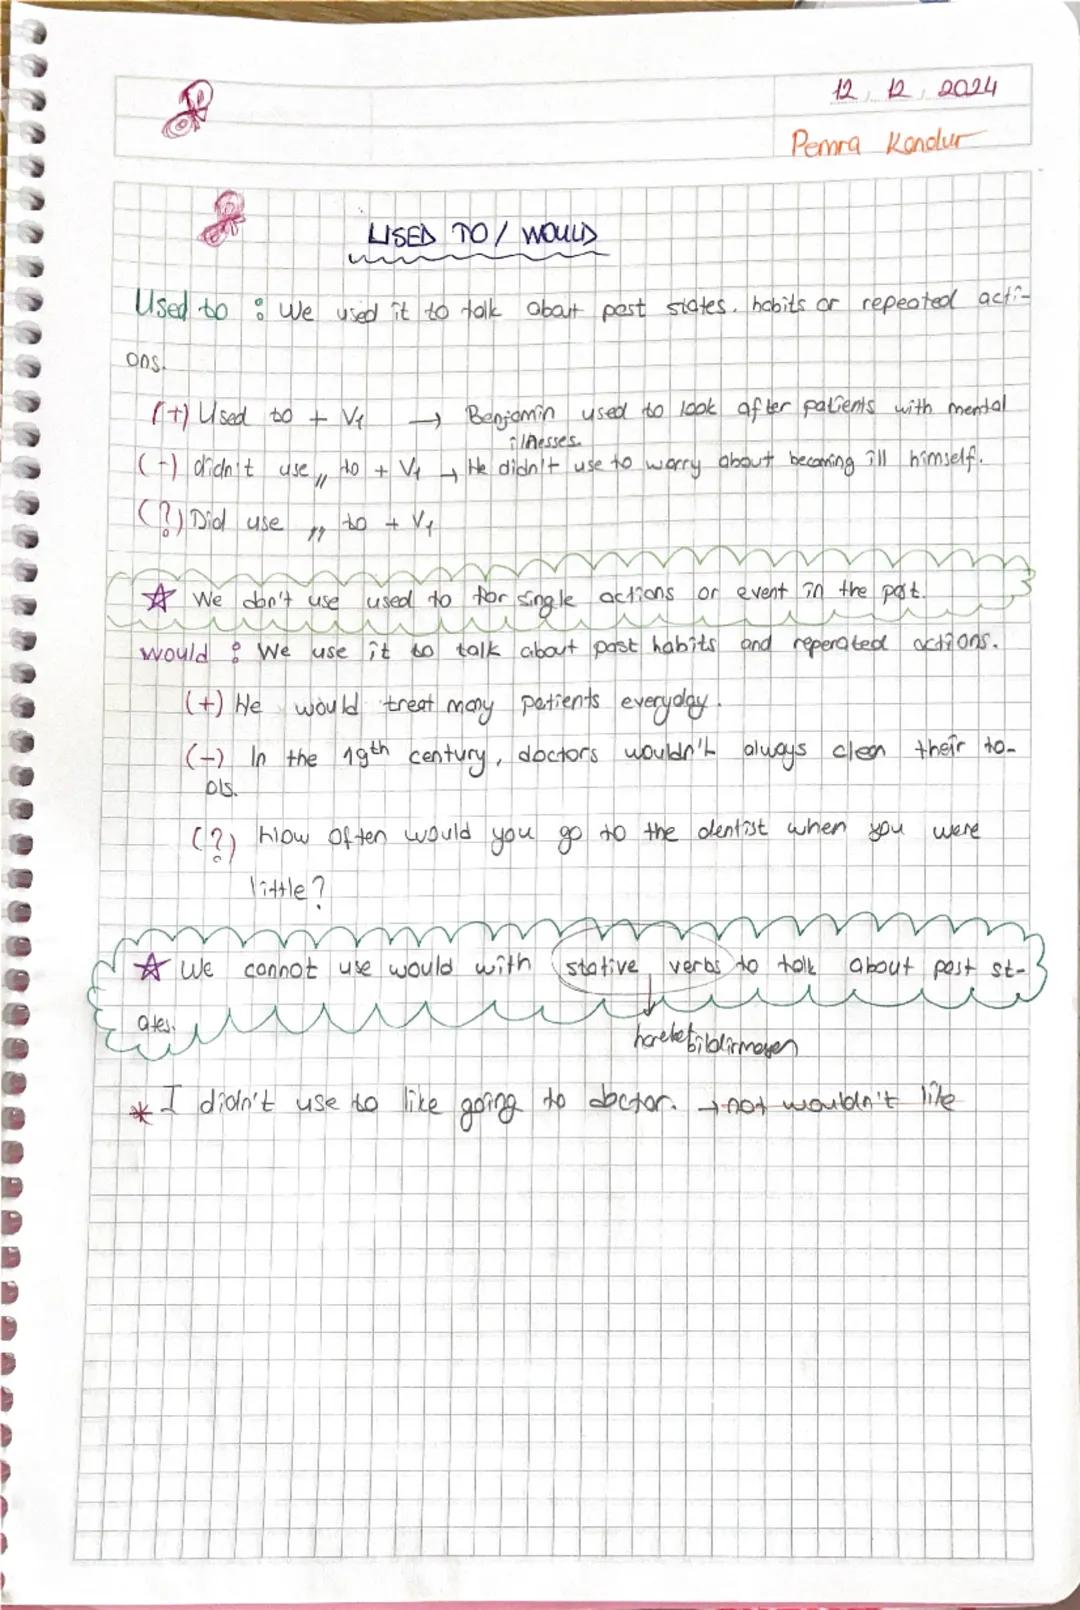 12, 12, 2024
Pemra Kondur
USED TO / WOULD
Used to : We used it to talk about past states. habits or repeated acti-
ons.
(+) Used to + V1 → Benjamin used to look after patients with mental
illnesses.
(-) didn't use,, to + V1 → He didn't use to worry about becoming ill himself.
(?) Did use ,, to + V1
☆ We don't use used to for single actions or event in the past.
would : We use it to talk about past habits and reperated actions.
(+) He would treat many patients everyday.
(-) In the 19th century, doctors wouldn't always clean their to-
ols.
(?) How often would you go to the dentist when you were
little?
☆ We cannot use would with stative verbs to talk about past st-
ates.
hareket bildirmeyen
* I didn't use to like going to doctor. → not wouldn't like